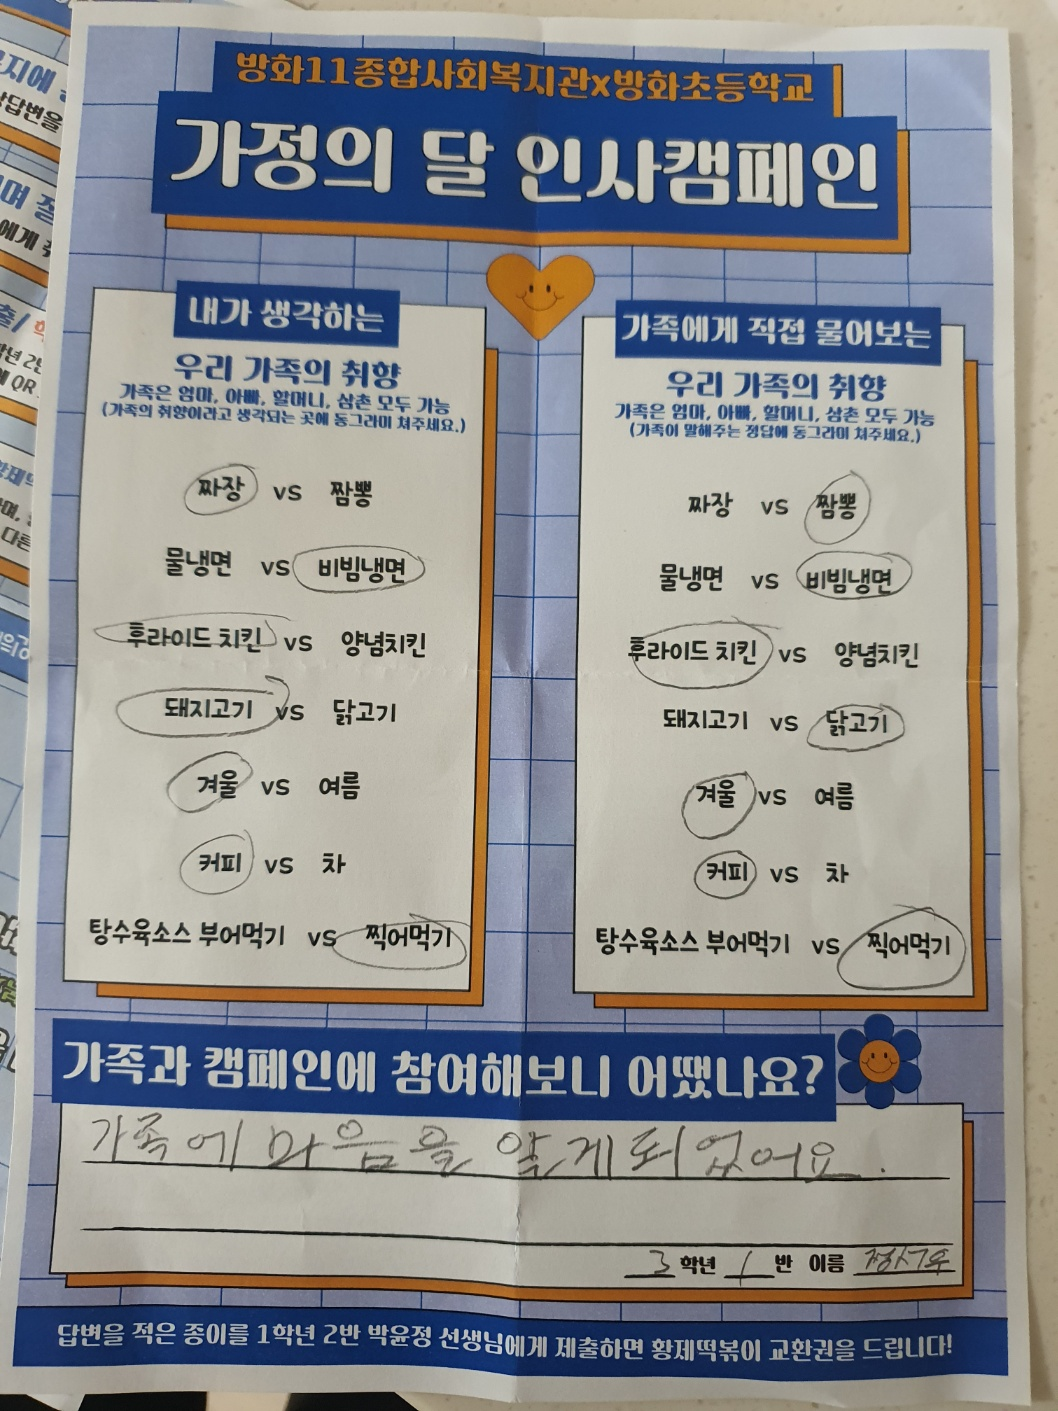 방화11종합사회복지관x방화초등학교
가정의 달 인사캠페인
내가 생각하는
우리 가족의 취향
가족은 엄마, 아빠, 할머니, 삼촌 모두 가능
(가족의 취향이라고 생각되는 곳에 동그라미 쳐주세요.)
짜장 vs 짬뽕
물냉면 vs 비빔냉면
후라이드 치킨 vs 양념치킨
돼지고기 vs 닭고기
겨울 vs 여름
커피 vs 차
탕수육소스 부어먹기 vs 찍어먹기
가족에게 직접 물어보는
우리 가족의 취향
가족은 엄마, 아빠, 할머니, 삼촌 모두 가능
(가족이 말해주는 정답에 동그라미 쳐주세요.)
짜장 vs 짬뽕
물냉면 vs 비빔냉면
후라이드 치킨 vs 양념치킨
돼지고기 vs 닭고기
겨울 vs 여름
커피 vs 차
탕수육소스 부어먹기 vs 찍어먹기
가족과 캠페인에 참여해보니 어땠나요?
가족에 마음을 알게되었어요.
3 학년 1 반 이름 정시우
답변을 적은 종이를 1학년 2반 박윤정 선생님에게 제출하면 황제떡볶이 교환권을 드립니다!